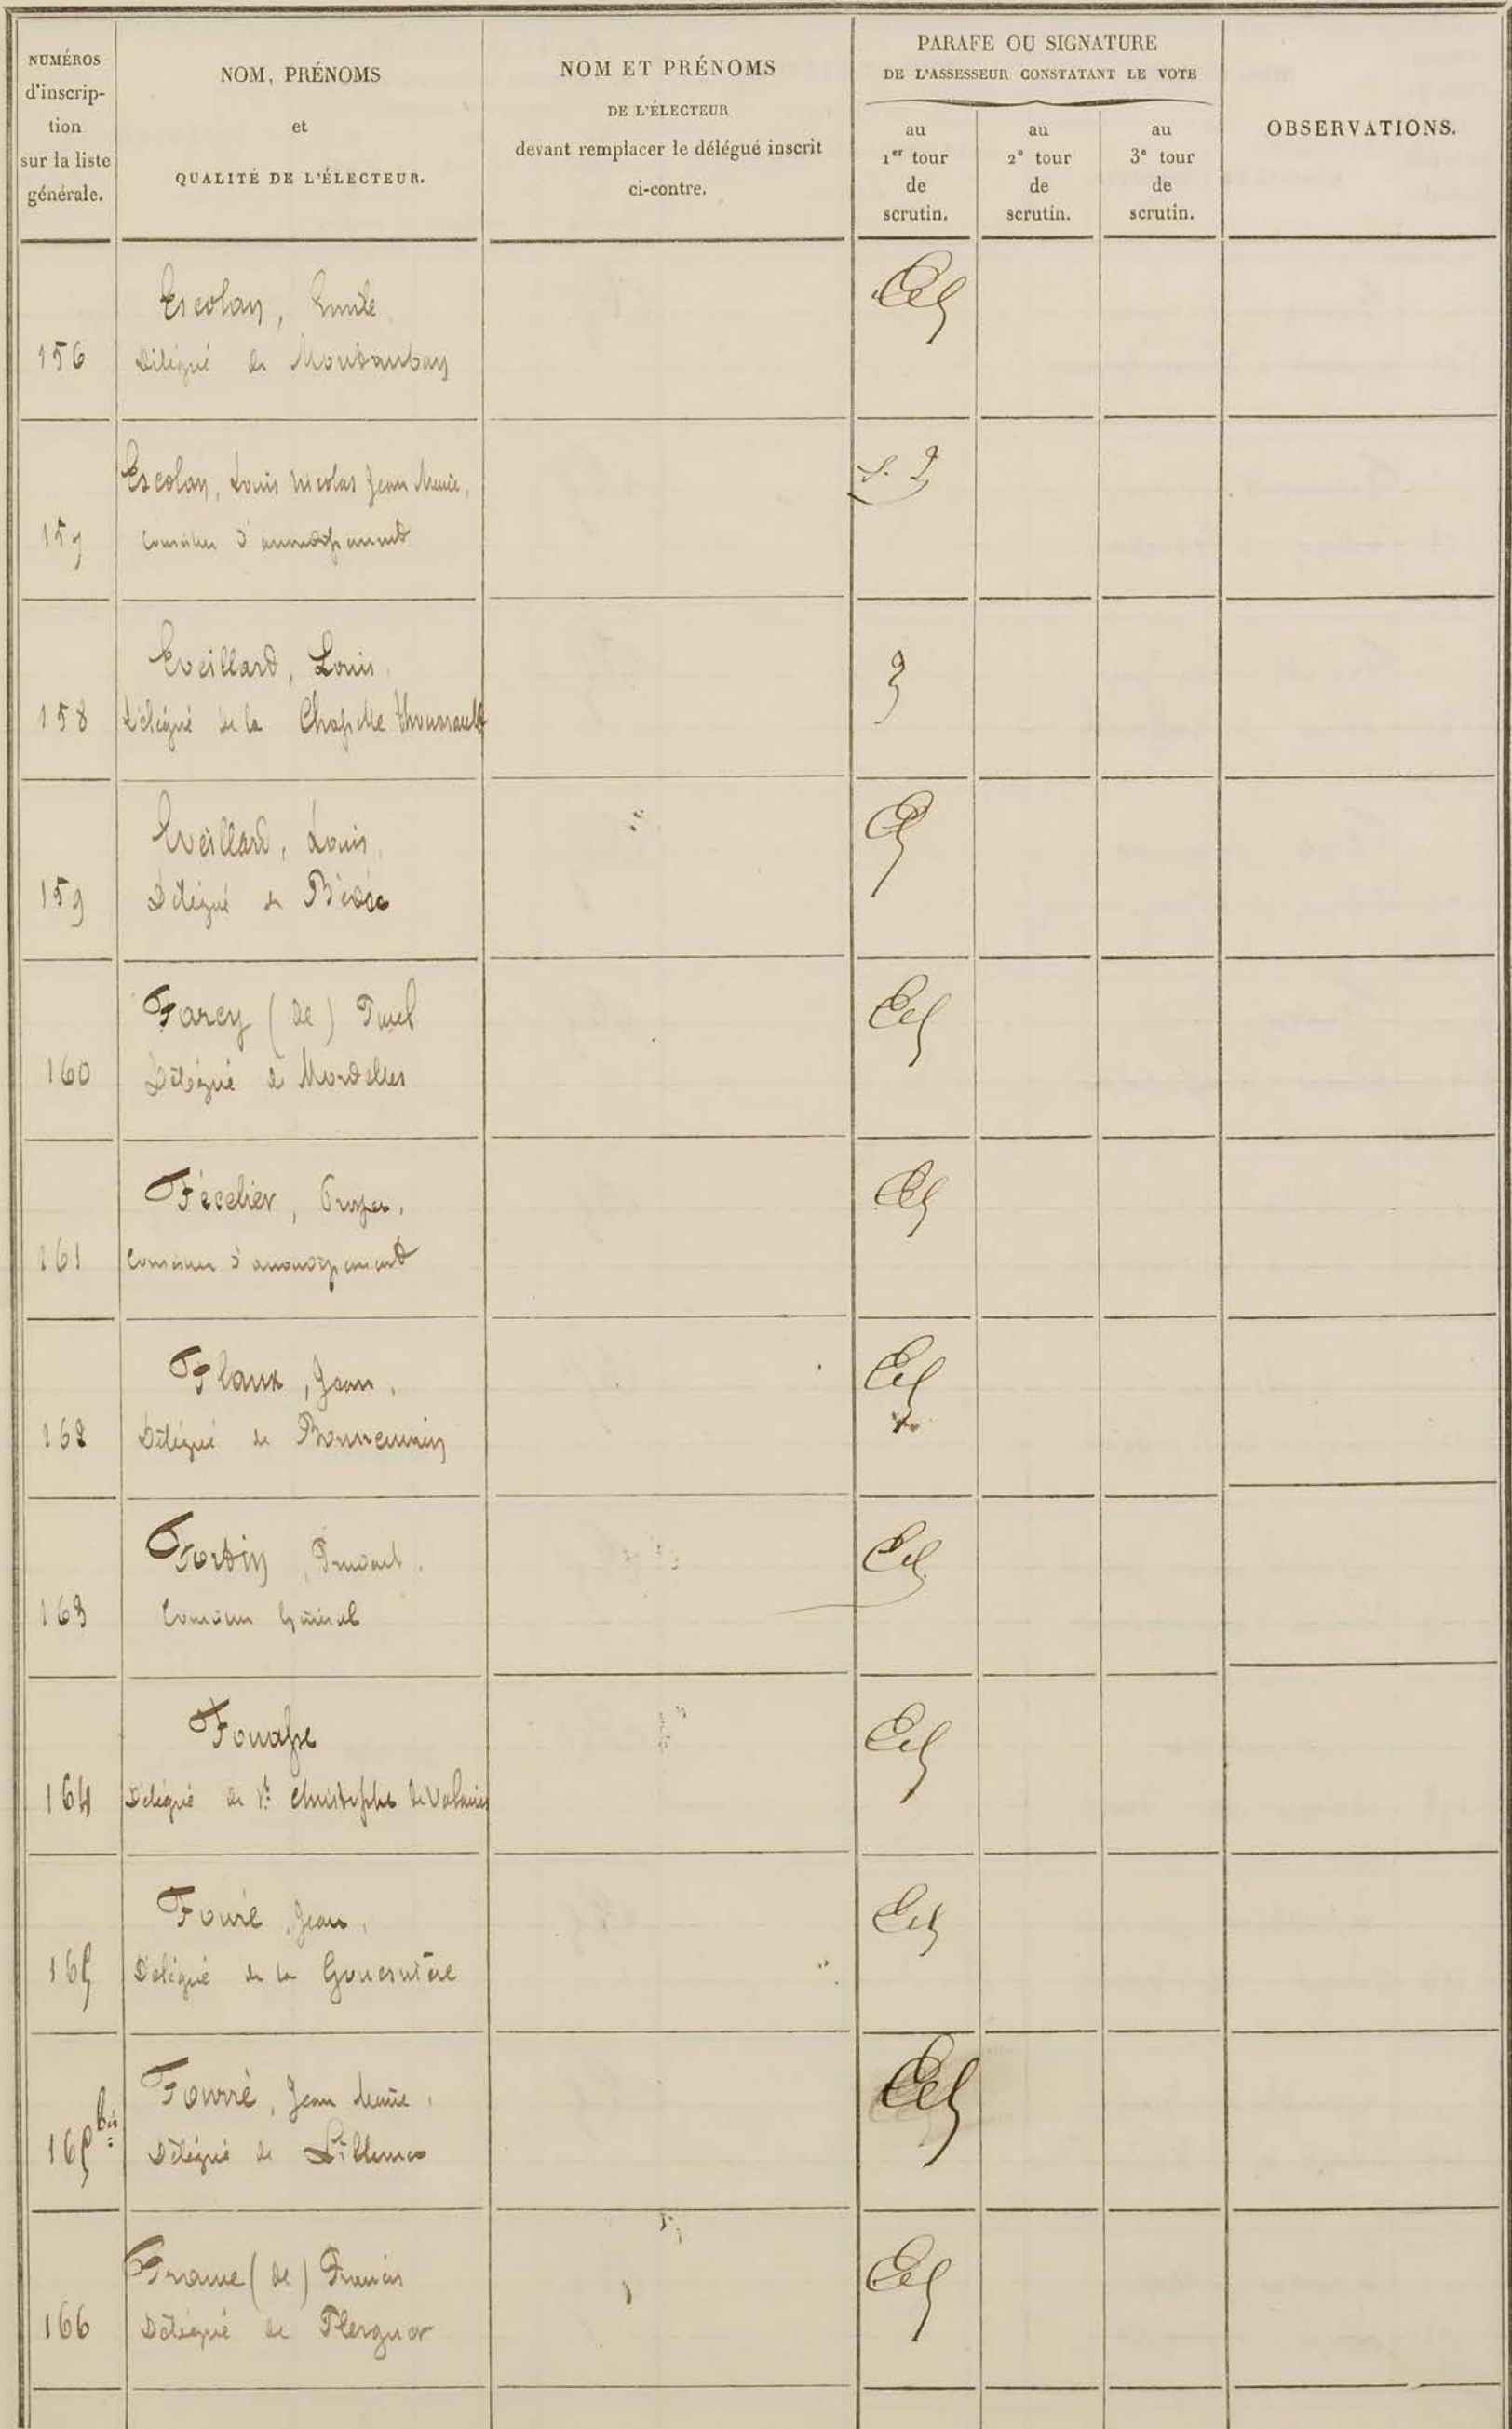 NUMÉROS
d'inscrip-
tion
sur la liste
générale.
NOM, PRÉNOMS
et
QUALITÉ DE L'ÉLECTEUR.
NOM ET PRÉNOMS
DE L'ÉLECTEUR
devant remplacer le délégué inscrit
ci-contre.
PARAFE OU SIGNATURE
DE L'ASSESSEUR CONSTATANT LE VOTE
au
1er tour
de
scrutin.
au
2e tour
de
scrutin.
au
3e tour
de
scrutin.
OBSERVATIONS.
Escolan, Emile
156 Délégué de Montauban
Escolan, Louis Nicolas Jean Marie,
157 Conseiller d'arrondissement
Eveillard, Louis
158 Délégué de la Chapelle Thouarault
Eveillard, Louis
159 Délégué de Bédée
Farcy (de) Paul
160 Délégué de Mordelles
Fécelier, Prosper,
161 Conseiller d'arrondissement
Flaux, Jean,
162 Délégué de Bonnemain
Fortin,
163 Conseiller Général
164 Délégué de St Christophe de Valains
Fouré, Jean,
165 Délégué de la Gouesnière
Fourré, Jean Marie,
165 bis Délégué de Lillemer
France (de) Francis
166 Délégué de Plerguer